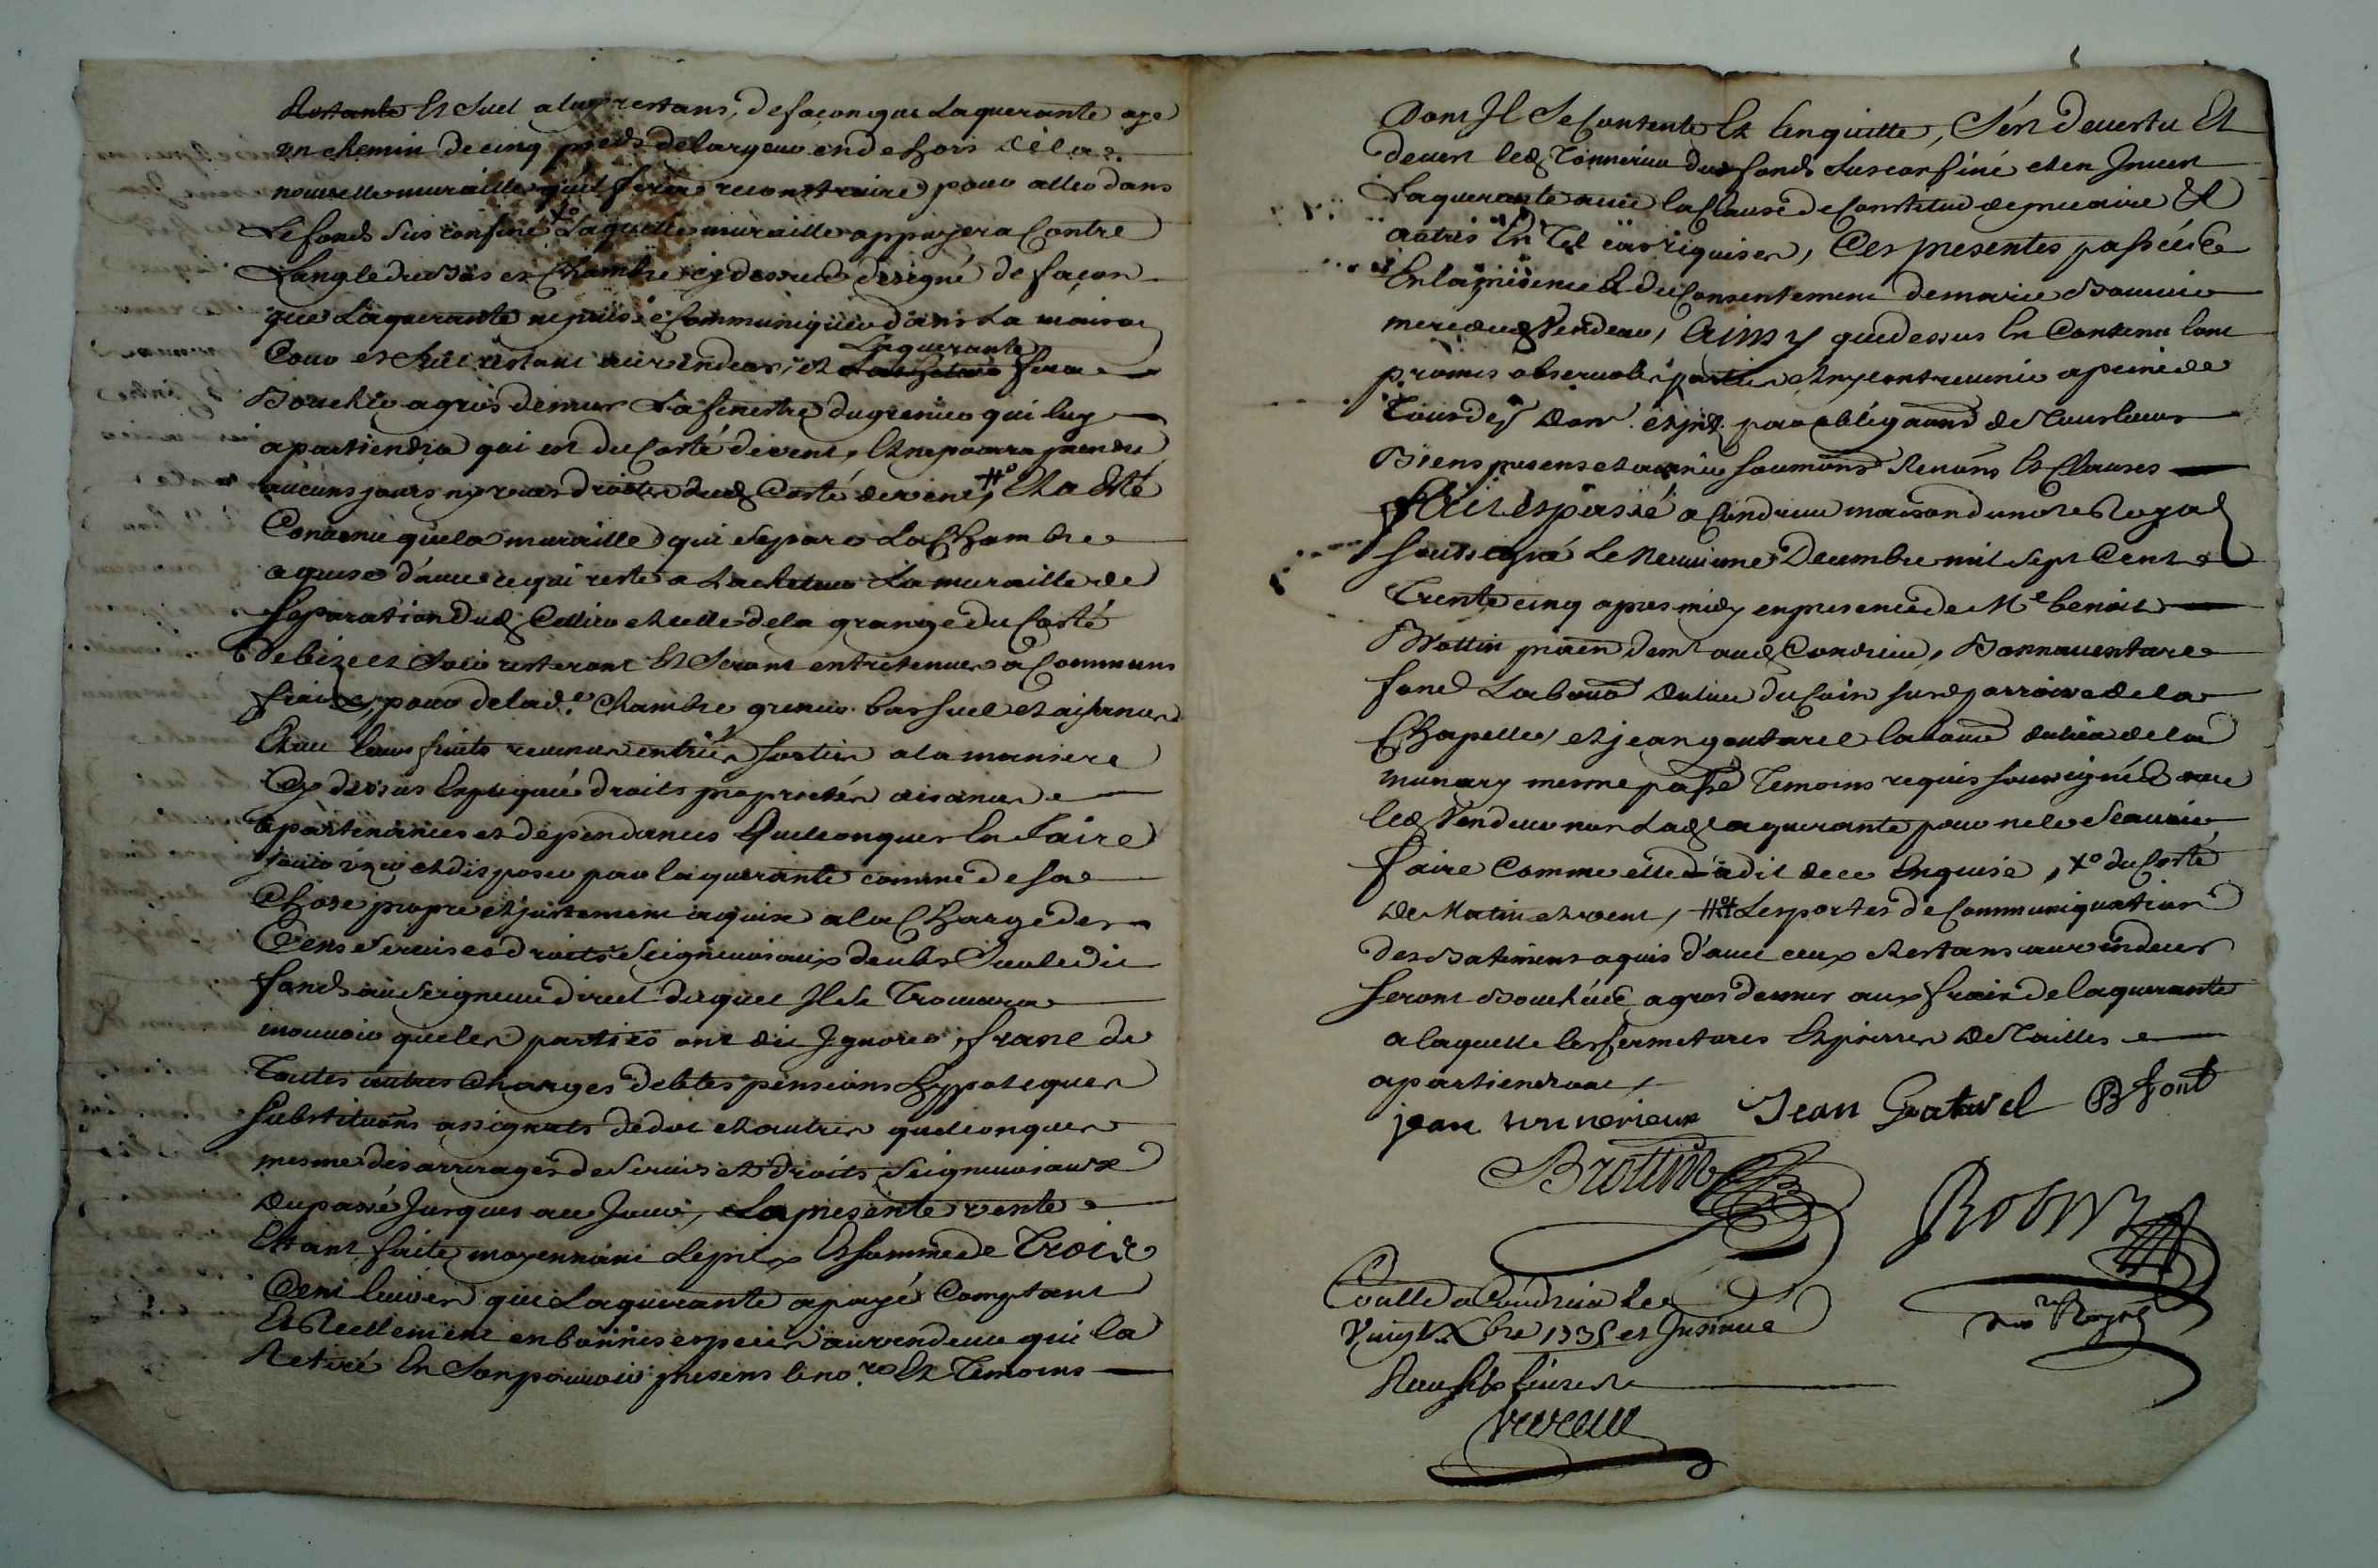 Restante Et Suel a luy restans, de façon que Laquerante aye
un chemin de cinq pieds de largeur en dehors de la
nouvelle muraille qu'il fera reconstruire pour aller dans
Le fonds sus confiné Xo Laquelle muraille appuyera Contre
L'angle du bas et Chambre cy dessus designé de façon
que Laquerante ne puisse Communiquer dans La maison
Cour et suel restant au vendeur, et Laquerante fera
Boucher a gros de mur La fenestre du grenier qui luy
apartiendra qui est du Costé de vent, Et ne pourra prendre
aucuns jours ny vues droites dud Costé de vent, # Et a Esté
Convenu que la muraille qui separe La Chambre
aquise d'avec ce qui reste a La muraille de
Separation dud Cellier et celle de la grange du Costé
de bize et soir resteront Et Seront entretenues a Communs
fraix, pour de lad.e Chambre grenier bas suel et aisances
Avec leurs fruits revenus entrées sorties a la maniere
Cy dessus Expliqué droits proprietés aisances
apartenances et dependances Quelconques En faire
jouir user et disposer par laquerante comme de sa
Chose propre et justement aquise a la Charge des
Cens Servis et droits Seigneuriaux deubs Sur le dit
fonds au Seigneur direct duquel Il se Trouvera
mouvoir que les parties ont dit Ignorer, franc de
Toutes autres Charges debtes pensions hyppoteques
Substituons assignats de dot et autres quelconques
mesme des arrerages de Servis et droits Seigneuriaux
du passé Jusques au Jour, La presente vente
Etant faite moyennant Le prix Et somme de Trois
Cent livres que Laquerante a payé Comptant
Et Reellement en bonnes especes au vendeur qui la
Retiré En Son pouvoir presens le no.re Et Temoins
Dont Il Se Contente Et l'en quitte, S'est devestu Et
devest led Tonnerieu du fonds Susconfiné et en Invest
Laquerante avec la Clause de Constitut de precaire &
autres En Tel cas requises, Ces presentes passées
En la presence Et du Consentement de marie
mere dud Vendeur, Ainsy que dessus En Contenu l'ont
promis observer parties et n'y contrevenir a peine de
Tous dep dom. et int par obligaons de Tous leurs
Biens presens et avenir soumons Renons Et Clauses
fait Et passé a Condrieu maison du no.re Royal
soussigné Le Neuvieme Decembre mil sept Cent
Trente cinq apres midy en presence de Me benoit
Brottin praen dem.t aud Condrieu, Bonnaventure
fond Labour du lieu du Coin susd parroisse de la
Chapelle, et jean gautarel labour du lieu de la
munary mesme passe Temoins requis soussignés avec
led Vendeur non Lad aquerante pour ne le Scavoir
faire Comme elle a dit de ce Enquise, Xo du Costé
de Matin et vent, # Les portes de Communiquation
des Batimens aquis d'avec ceux Restans au vendeur
seront Bouchées a gros de mur aux fraix de laquerante
a laquelle les fermetures Et pierres de Tailles
apartiendront
jean tonnerieux Jean Gatarel B font
Brottin
Robin
no.re Royal
Conllé a Condrieu Le
Vingt Xbre 1735 et Insinué
Reçu six livres